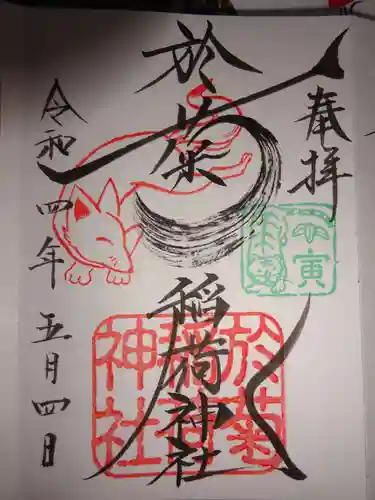 奉拝
於菊
稲荷神社
令和四年五月四日
壬寅
於菊
稲荷
神社